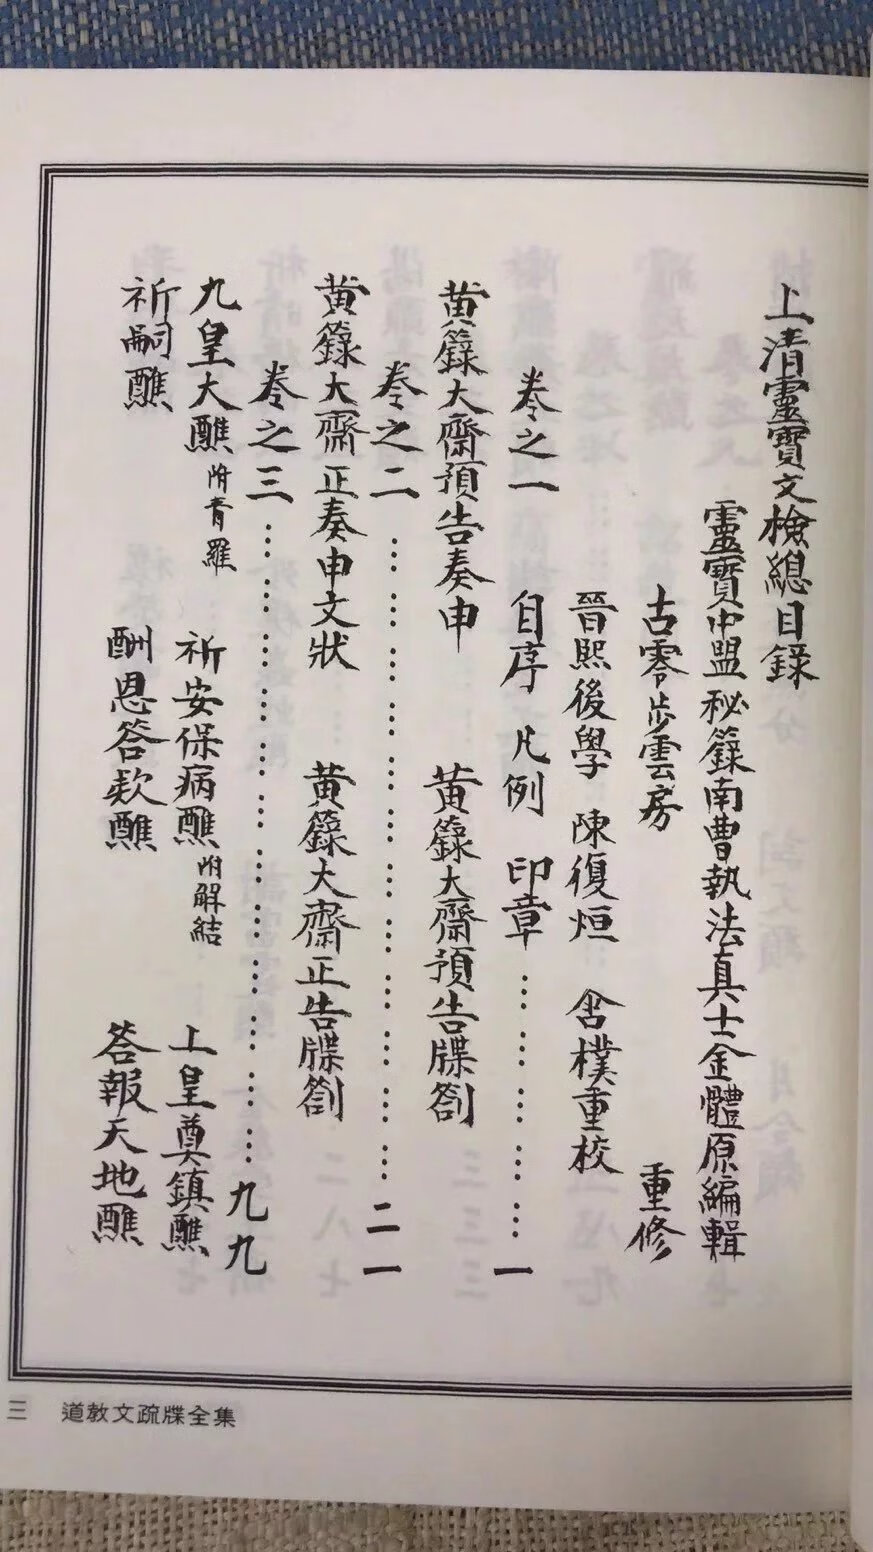 上清靈寶文檢總目錄
靈寶中盟秘籙南曹執法真士金體原編輯
古零步雲房 重修
晉熙後學 陳復烜 含樸重校
卷之一 自序 凡例 印章 …………… 一
黃籙大齋預告奏申 黃籙大齋預告牒劄
卷之二 …………………………… 二一
黃籙大齋正奏申文狀 黃籙大齋正告牒劄
卷之三 …………………………… 九九
九皇大醮 附青羅 祈安保病醮 附解結 上皇奠鎮醮
祈嗣醮 酬恩答款醮 答報天地醮
三 道教文疏牒全集